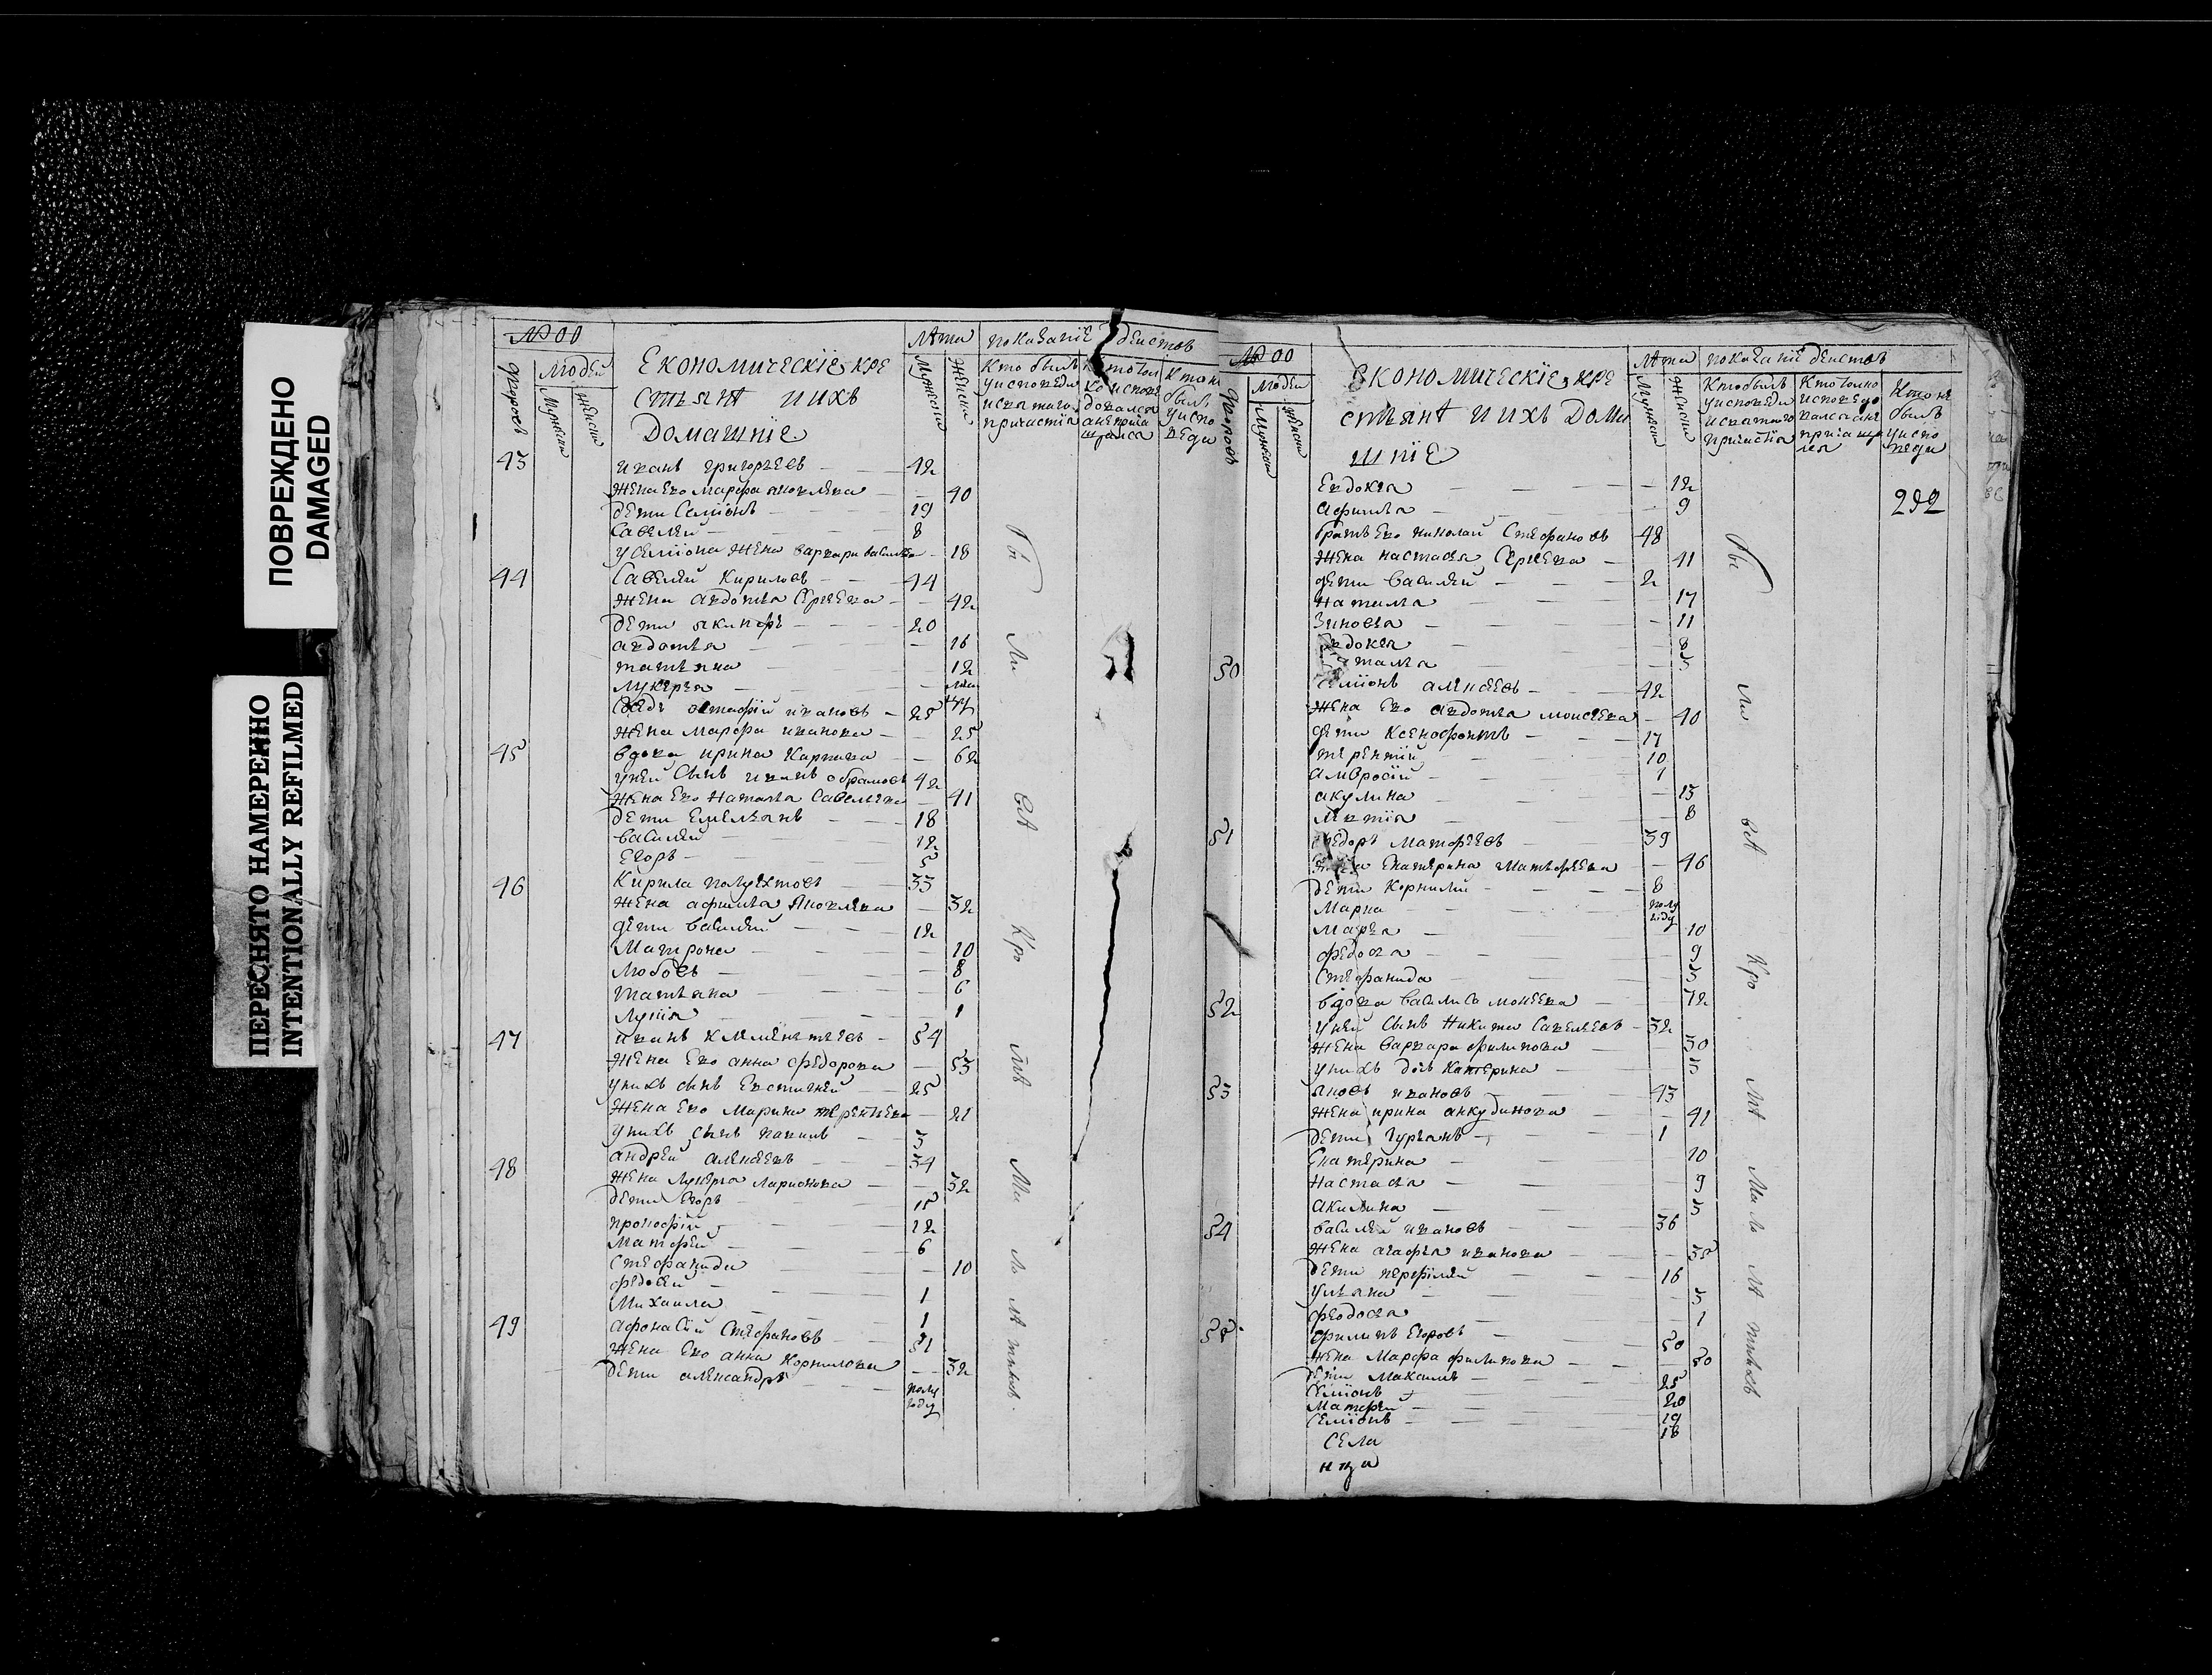 ПОВРЕЖДЕНО
DAMAGED
ПЕРЕСНЯТО НАМЕРЕННО
INTENTIONALLY REFILMED
№ 00
дворовъ
людей
Мужеска
женска
Економическіе кре
стьянѣ и ихъ
Домашніе
лѣта
Мужеска
женска
показаніе действъ
Кто былъ
у исповеди
и святаго
причастія
Кто не
былъ
у испо
веди
43 иванъ григорьевъ 42
жена ево марфа яковлева 40
дети Семіонъ 19
Савелей 8
у семіона жена варвара 18
44 Савелей Кириловъ 44
жена авдотья Сергеева 42
дети 20
авдотья 16
татьяна 12
лукерья
ивановъ 25
жена марфа иванова 25
45 вдова ирина Карпова 62
у ней сынъ иванъ абрамовъ 42
жена ево наталья Савельева 41
дети Емельянъ 18
василей 12
Егоръ 5
46 Кирила полуектовъ 33
жена афимья яковлева 32
дети василей 12
Матрона 10
любовь 8
татьяна 6
1
47 иванъ клементьевъ 54
жена ево анна федорова 53
у нихъ сынъ Евстигней 25
жена ево Марина терентьева 21
у нихъ сынъ 3
48 андрей алексеевъ 34
жена лукерья ларионова 32
дети Егоръ 15
прокофій 12
Матфей 6
Стефанида 10
федосей 1
Михаила 1
49 афонасій Стефановъ 51
жена ево анна Корнилова 32
дети александръ полу году
бы
ли
всѣ
кро
мѣ
ма
ло
лѣтныхъ
№ 00
дворовъ
людей
Мужеска
женска
Економическіе кре
стьянѣ и ихъ дома
шніе
лѣта
Мужеска
женска
показаніе действъ
Кто былъ
у исповеди
и святаго
причастія
Кто толко
исповедо
вался а не
прича ща
лся
Кто не
былъ
у испо
веди
292
Евдокея 12
афимья 9
братъ ево николай Стефановъ 48
жена настасья Сергеева 41
дети василей 2
наталья 17
Зиновья 11
Евдокея 8
наталья 5
50 Семіонъ алексеевъ 42
жена ево авдотья моисеева 40
дети Ксенофонтъ 17
терентій 10
амвросій 1
акулина 13
8
51 федоръ матфеевъ 39
жена Екатерина Матфеева 46
дети Корнилий 8
Марка полу году
Марья 10
федосья 9
Стефанида 5
52 вдова василиса 72
у ней сынъ Никита Савельевъ 32
жена варвара филипова 30
у нихъ дочь Катерина
53 яковъ ивановъ 43
жена ирина анкудинова 41
дети гурьянъ 1
Екатерина 10
настасья 9
акилина 5
54 василей ивановъ 36
жена агафья иванова 35
дети перфилей 16
ульяна 3
федосья 1
55 филипъ Егоровъ 50
жена Марфа филипова 50
дети Максимъ 25
Семіонъ 20
Матфей 19
Семіонъ 16
Села
бы
ли
всѣ
кро
мѣ
мало
лѣ
тныхъ